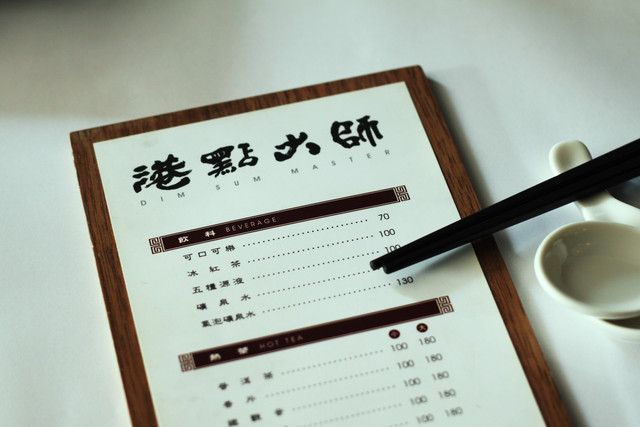 港點大師
DIM SUM MASTER
飲料 BEVERAGE
可口可樂 70
冰紅茶 100
100
礦泉水
氣泡礦泉水 130
熱 HOT TEA 小 大
普洱茶 100 180
香片 100 180
鐵觀音 100 180
100 180